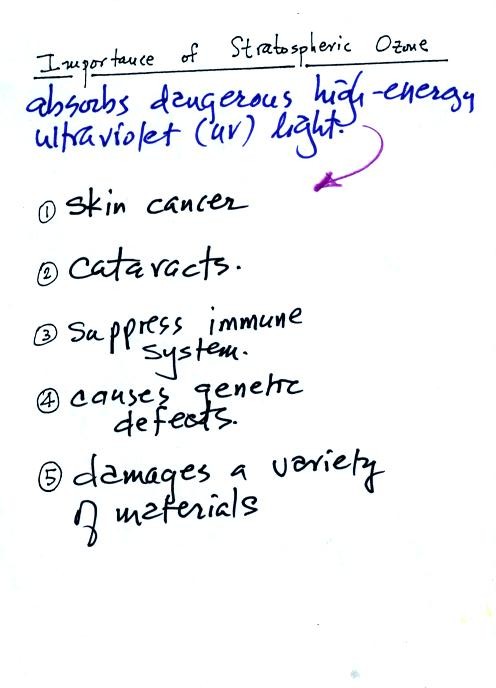 Importance of Stratospheric Ozone
absorbs dangerous high-energy
ultraviolet (uv) light.
① skin cancer
② cataracts.
③ suppress immune
system.
④ causes genetic
defects.
⑤ damages a variety
of materials